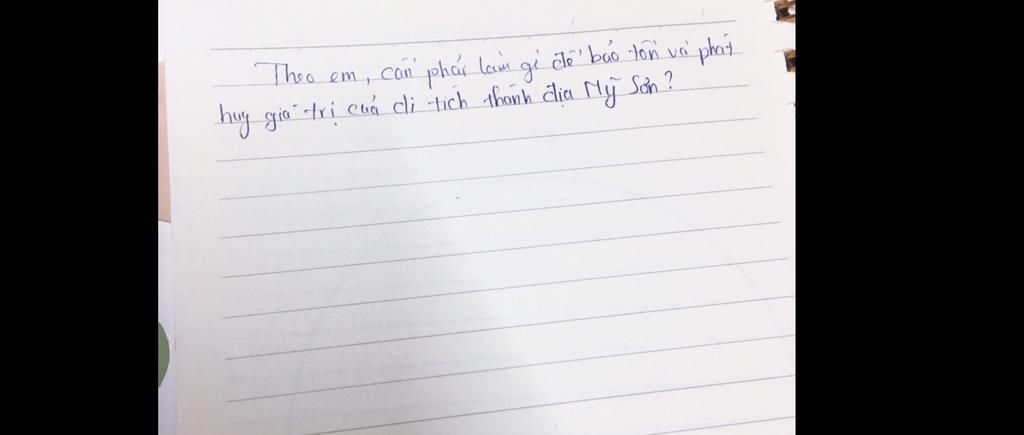 Theo em, cần phải làm gì để bảo tồn và phát
huy giá trị của di tích thánh địa Mỹ Sơn?